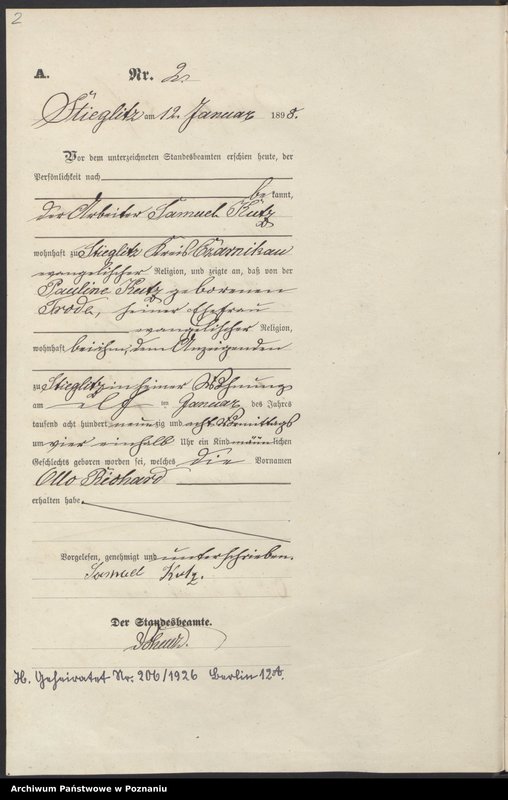 2
A.
Nr. 2
Stieglitz am 12. Januar 1898.
Vor dem unterzeichneten Standesbeamten erschien heute, der
Persönlichkeit nach
be kannt,
der Arbeiter Samuel Kutz
wohnhaft zu Stieglitz Kreis Czarnikau
evangelischer Religion, und zeigte an, daß von der
Pauline Kutz geborenen
Trode, seiner Ehefrau
evangelischer Religion,
wohnhaft bei ihm, dem Anzeigenden
zu Stieglitz in seiner Wohnung
am elf ten Januar des Jahres
tausend acht hundert neunzig und acht Vormittags
um vier einhalb Uhr ein Kind männlichen
Geschlechts geboren worden sei, welches die Vornamen
Otto Richard
erhalten habe.
Vorgelesen, genehmigt und unterschrieben.
Samuel Kutz.
Der Standesbeamte.
H. Geheiratet Nr. 206/1926 Berlin 12a.
Archiwum Państwowe w Poznaniu